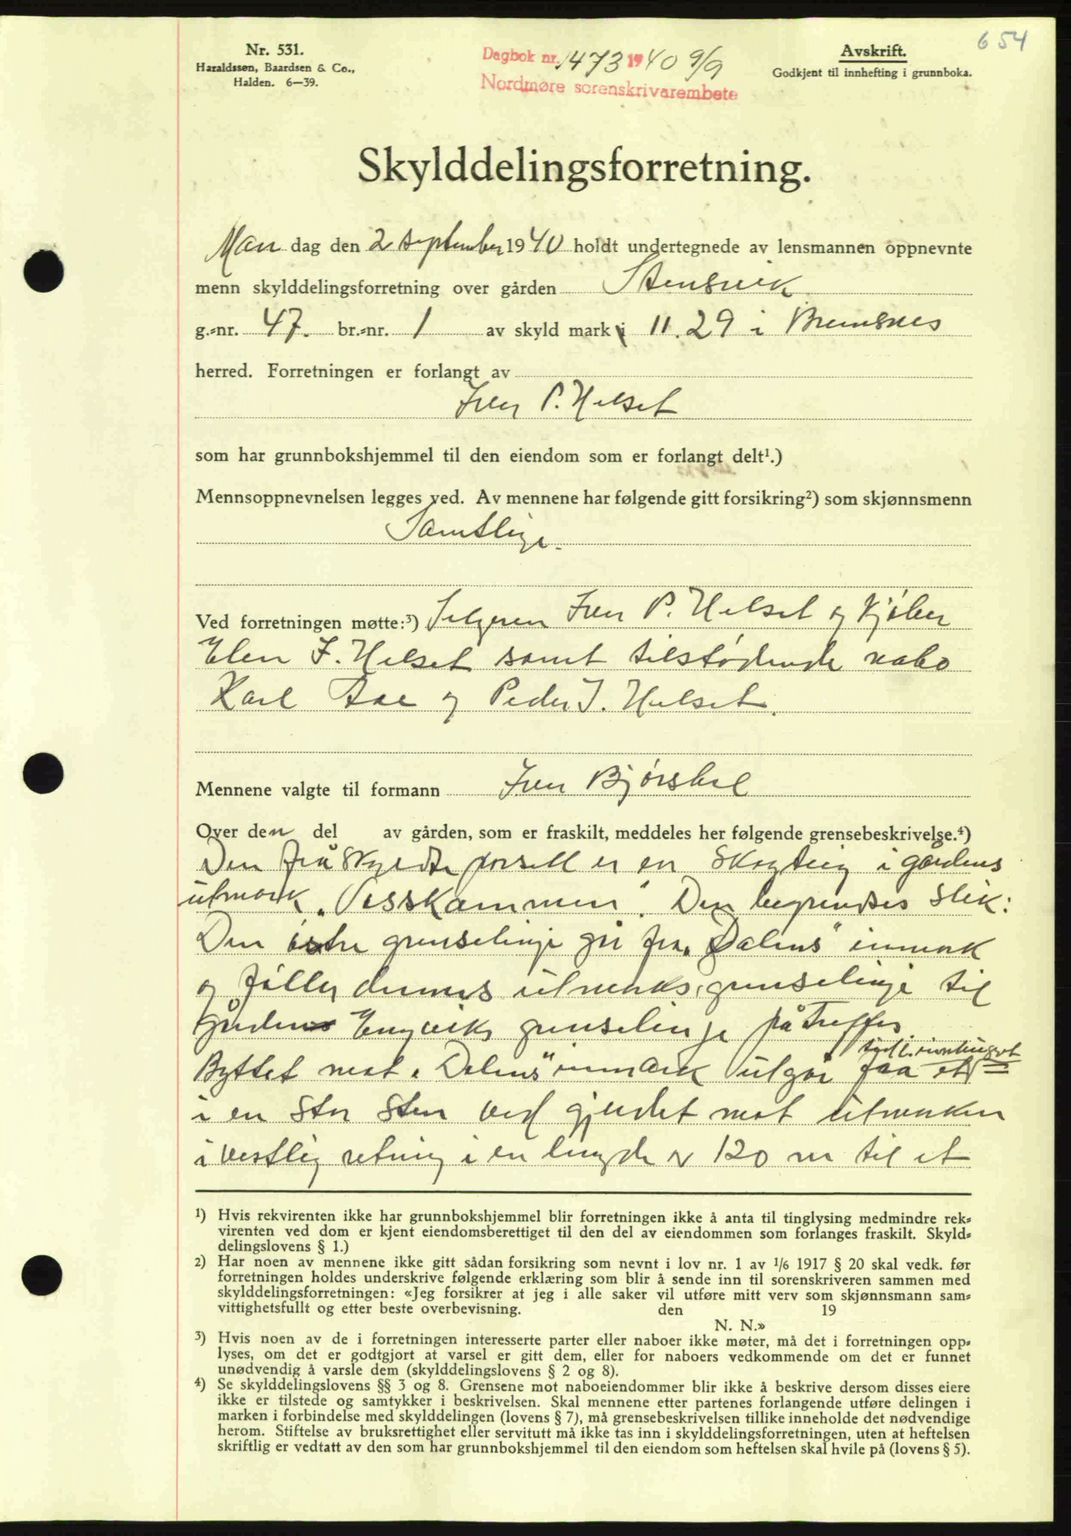 654
Nr. 531.
Haraldssen, Baardsen & Co.,
Halden. 6—39.
Dagbok nr. 1473 1940 9/9
Nordmøre sorenskrivarembete
Avskrift.
Godkjent til innhefting i grunnboka.
Skylddelingsforretning.
Man dag den 2 september 1940 holdt undertegnede av lensmannen oppnevnte
menn skylddelingsforretning over gården Stensvik
g.-nr. 47. br.-nr. 1 av skyld mark 11.29 i Bremsnes
herred. Forretningen er forlangt av
Iver P. Helset
som har grunnbokshjemmel til den eiendom som er forlangt delt¹.)
Mennsoppnevnelsen legges ved. Av mennene har følgende gitt forsikring²) som skjønnsmenn
Samtlige.
Ved forretningen møtte:³) Selgeren Iver P. Helset og kjøber
Elen I. Helset samt tilstødende nabo
Karl Aae og Peder I. Helset.
Mennene valgte til formann Iver Bjørshol
Over den del av gården, som er fraskilt, meddeles her følgende grensebeskrivelse.⁴)
Den fraskyldte parsell er en skogteig i gårdens
utmark „Vesskammen". Den begrendses slik:
Den østre grenselinje går fra „Dalens" innmark
og følger dennes utmarks grenselinje til
gården Engviks grenselinje påtreffes.
Byttet mot „Dalens" innmark utgår fra et
i en stor sten ved gjerdet mot utmarken
i vestlig retning i en lengde av 120 m til et
¹) Hvis rekvirenten ikke har grunnbokshjemmel blir forretningen ikke å anta til tinglysing medmindre rek-
virenten ved dom er kjent eiendomsberettiget til den del av eiendommen som forlanges fraskilt. Skyld-
delingslovens § 1.)
²) Har noen av mennene ikke gitt sådan forsikring som nevnt i lov nr. 1 av 1/6 1917 § 20 skal vedk. før
forretningen holdes underskrive følgende erklæring som blir å sende inn til sorenskriveren sammen med
skylddelingsforretningen: «Jeg forsikrer at jeg i alle saker vil utføre mitt verv som skjønnsmann sam-
vittighetsfullt og etter beste overbevisning. den 19
N. N.»
³) Hvis noen av de i forretningen interesserte parter eller naboer ikke møter, må det i forretningen opp-
lyses, om det er godtgjort at varsel er gitt dem, eller for naboers vedkommende om det er funnet
unødvendig å varsle dem (skylddelingslovens § 2 og 8).
⁴) Se skylddelingslovens §§ 3 og 8. Grensene mot naboeiendommer blir ikke å beskrive dersom disses eiere
ikke er tilstede og samtykker i beskrivelsen. Skal mennene etter partenes forlangende utføre delingen i
marken i forbindelse med skylddelingen (lovens § 7), må grensebeskrivelsen tillike inneholde det nødvendige
herom. Stiftelse av bruksrettighet eller servitutt må ikke tas inn i skylddelingsforretningen, uten at heftelsen
skriftlig er vedtatt av den som har grunnbokshjemmel til den eiendom som heftelsen skal hvile på (lovens § 5).